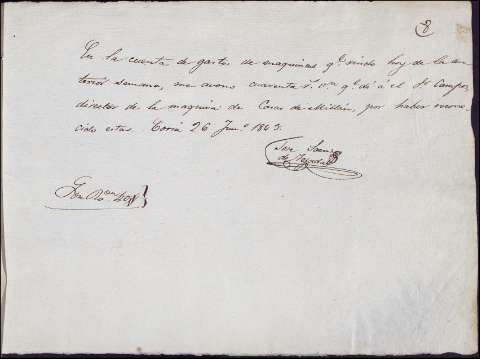 8
En la cuenta de gastos de maquinas q.e rindo hoy de la an-
terior semana, me abono cuarenta r.s v.n q.e di á el S.r Campo,
director de la maquina de Casas de Millan, por haber recono-
cido estas. Coria 26 Jun.o 1843.
José
de
Son R.s v.n 40 }